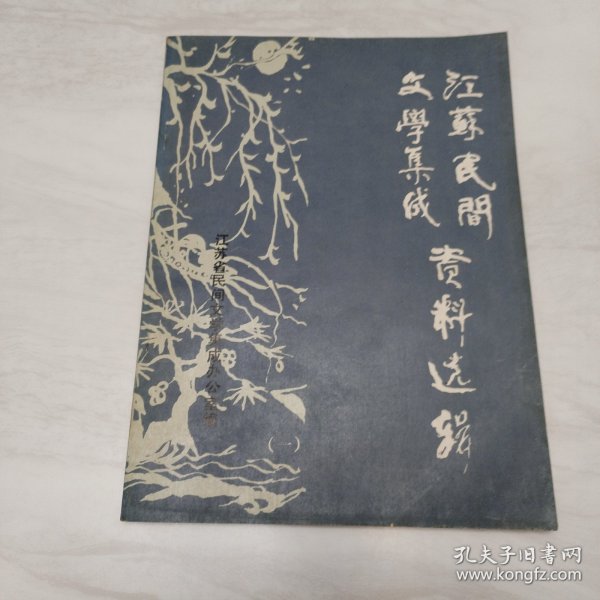 江蘇民間
文學集成
資料选辑
江苏省民间文学集成办公室编
（一）
孔夫子旧书网
www.kongfz.com